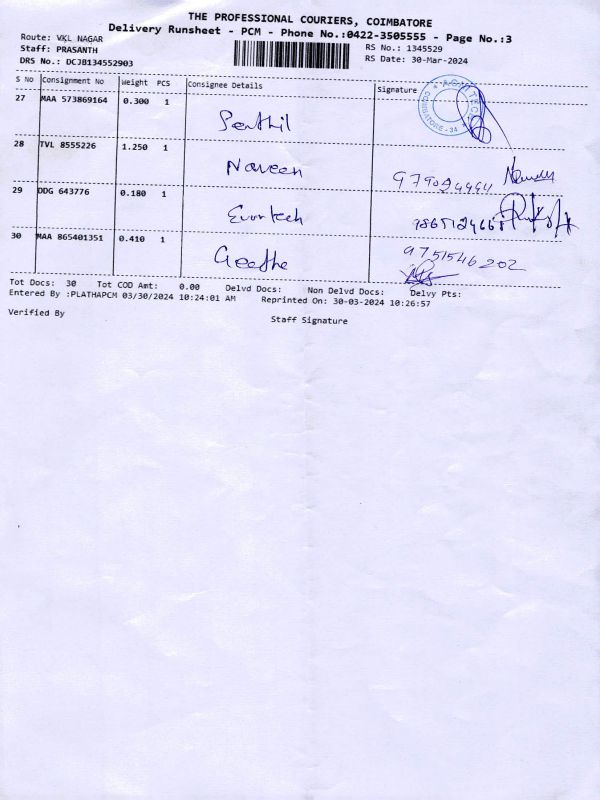 THE PROFESSIONAL COURIERS, COIMBATORE
Delivery Runsheet - PCM - Phone No.:0422-3505555 - Page No.:3
Route: VKL NAGAR
Staff: PRASANTH
DRS No.: DCJB134552903
RS No.: 1345529
RS Date: 30-Mar-2024
S No Consignment No Weight PCS Consignee Details Signature
27 MAA 573869164 0.300 1 Senthil
COIMBATORE - 34
28 TVL 8555226 1.250 1 Naveen
29 DDG 643776 0.180 1 Evertech
30 MAA 865401351 0.410 1 Geetha 9751546202
Tot Docs: 30 Tot COD Amt: 0.00 Delvd Docs: Non Delvd Docs: Delvy Pts:
Entered By :PLATHAPCM 03/30/2024 10:24:01 AM Reprinted On: 30-03-2024 10:26:57
Verified By
Staff Signature